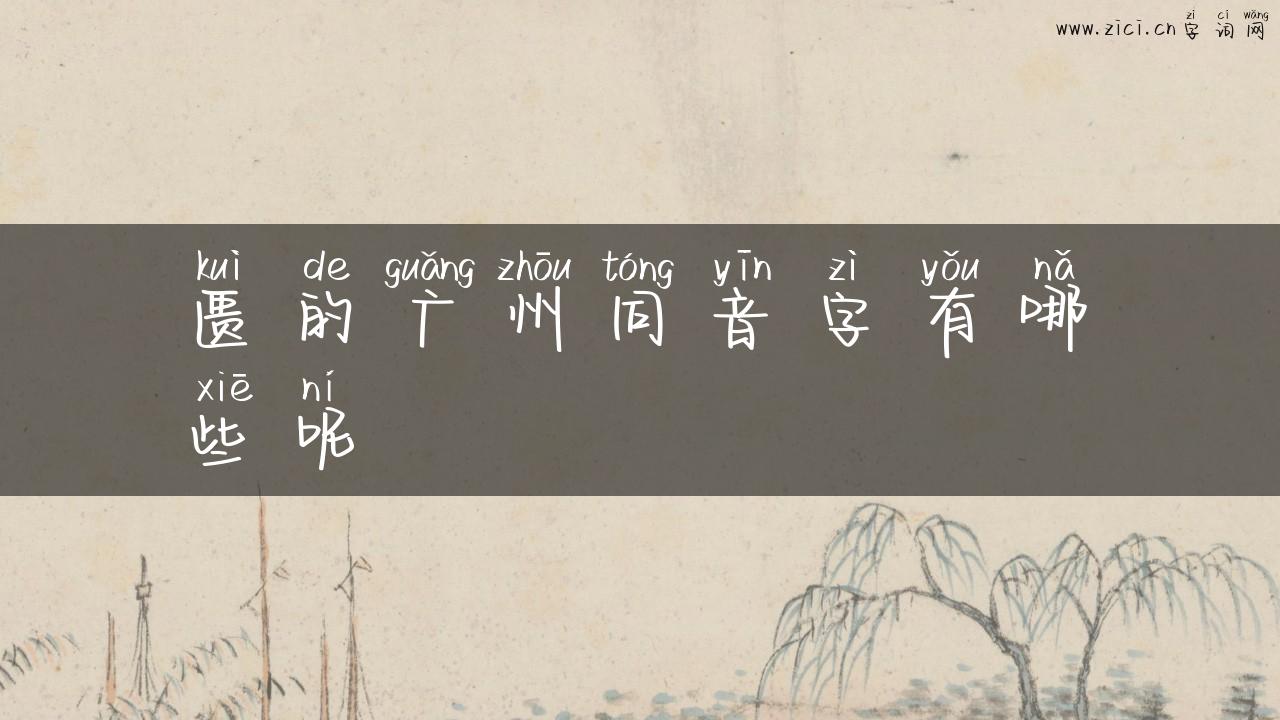 zì cí wǎng
www.zici.cn 字 词 网
kuì de guǎng zhōu tóng yīn zì yǒu nǎ
匮 的 广 州 同 音 字 有 哪
xiē ní
些 呢